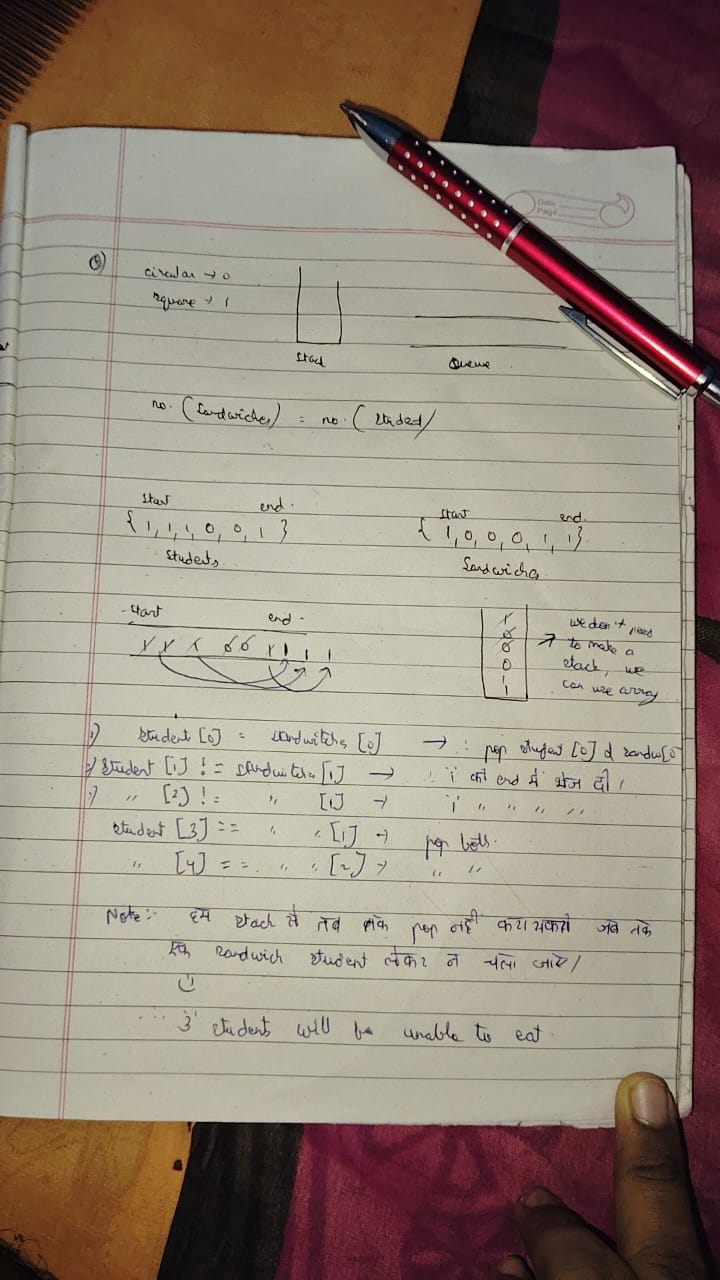 Q)
circular → 0
square → 1
Stack
Queue
no. (Sandwiches) = no. (Student)
start end.
{ 1, 1, 1, 0, 0, 1 }
Students
start end.
{ 1, 0, 0, 0, 1, 1 }
Sandwiches
start end.
1 1 1 0 0 1 1 1 1
1
0
0
0
1
1
→ we don't need
to make a
stack, we
can use array
1) Student [0] = sandwitches [0] → : pop student [0] & sandw[0]
2) Student [1] != sandwitches [1] → : 1 को end में भेज दो ।
:) " [2] != " [1] → 1 " " " "
student [3] == " " [1] → pop both.
" [4] == " " [2] → " "
Note:- हम stack से तब तक pop नहीं करा सकते जब तक
एक sandwich student लेकर न चला जाये /
... 3 students will be unable to eat.
Date
Page